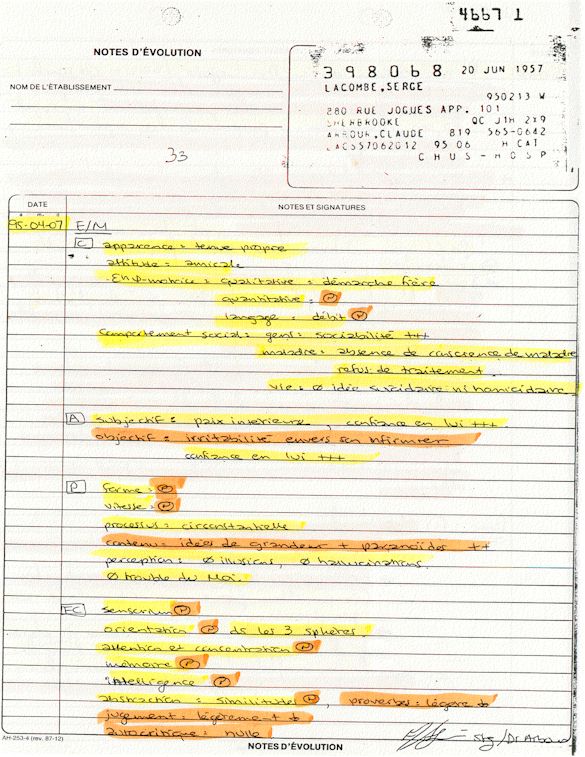 4667 1
NOTES D'ÉVOLUTION
398068 20 JUN 1957
LACOMBE,SERGE
950213 W
NOM DE L'ÉTABLISSEMENT
280 RUE JOGUES APP. 101
SHERBROOKE QC J1H 2Y9
ARBOUR,CLAUDE 819 565-0642
LACS57062012 95 06 H CAT
CHUS-HOSP
33
DATE NOTES ET SIGNATURES
95-04-07 E/M
C apparence = tenue propre
attitude = amicale
qualitative = démarche fière
quantitative = N
langage = débit N
comportement social: gens: sociabilité +++
maladie: absence de conscience de maladie
refus de traitement
vie = Ø idée suicidaire ni homicidaire
A subjectif = paix intérieure, confiance en lui +++
objectif = irritabilité envers son infirmier
confiance en lui +++
P forme = N
vitesse = N
processus = circonstantielle
contenu = idées de grandeur + paranoïdes ++
perception = Ø illusions, Ø hallucinations,
Ø trouble du Moi.
FC sensorium N
orientation N ds les 3 sphères.
attention et concentration N
mémoire N
intelligence N
abstraction = similitudes N, proverbes = légère ↓
jugement = légèrement ↓
autocritique = nulle
AH-253-4 (rev. 87-12)
NOTES D'ÉVOLUTION
/Dr Arbour